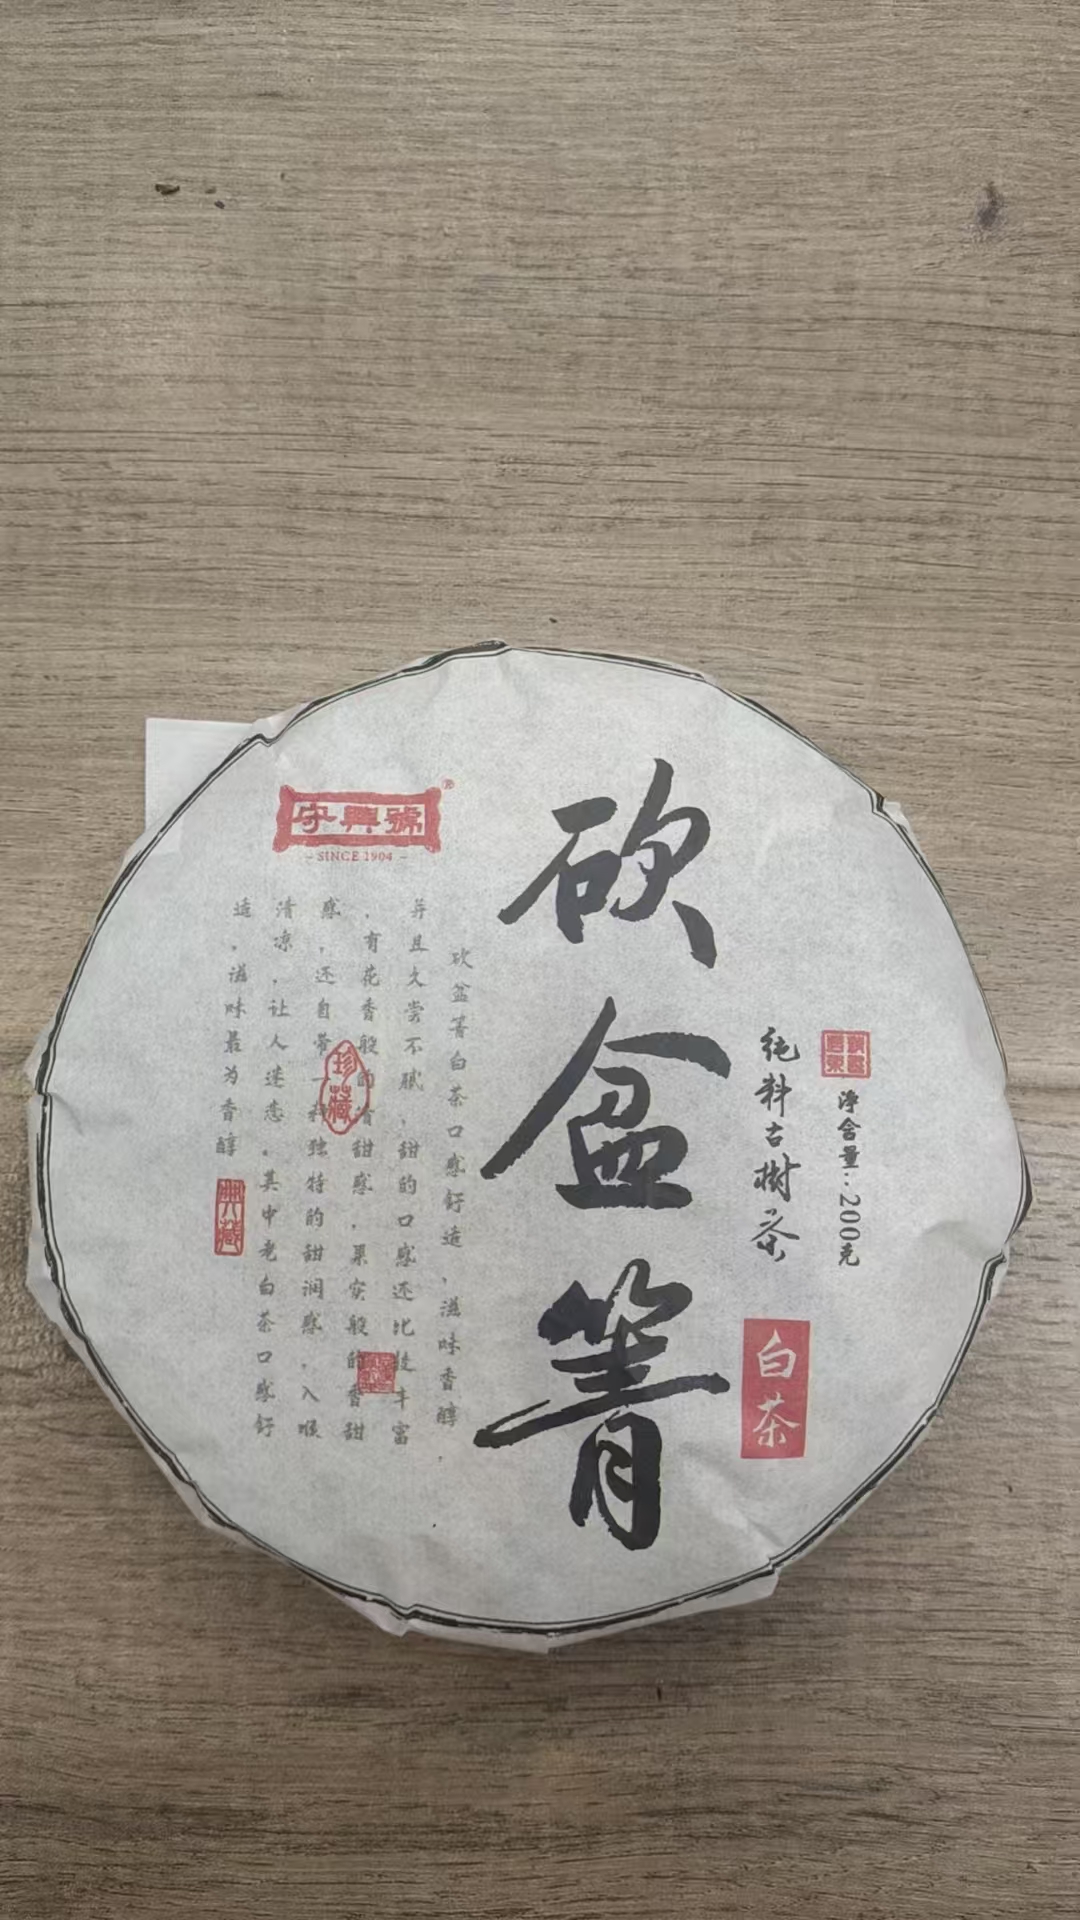 守興號®
– SINCE 1904 –
砍盆箐
純料古樹茶
净含量：200克
白茶
砍盆箐白茶口感舒适，滋味香醇，
并且久尝不腻，甜的口感还比较丰富
，有花香般的清甜感，果实般的香甜
感，还自带一种独特的甜润感，入喉
清凉，让人迷恋。其中老白茶口感舒
适，滋味最为香醇
珍藏
典藏